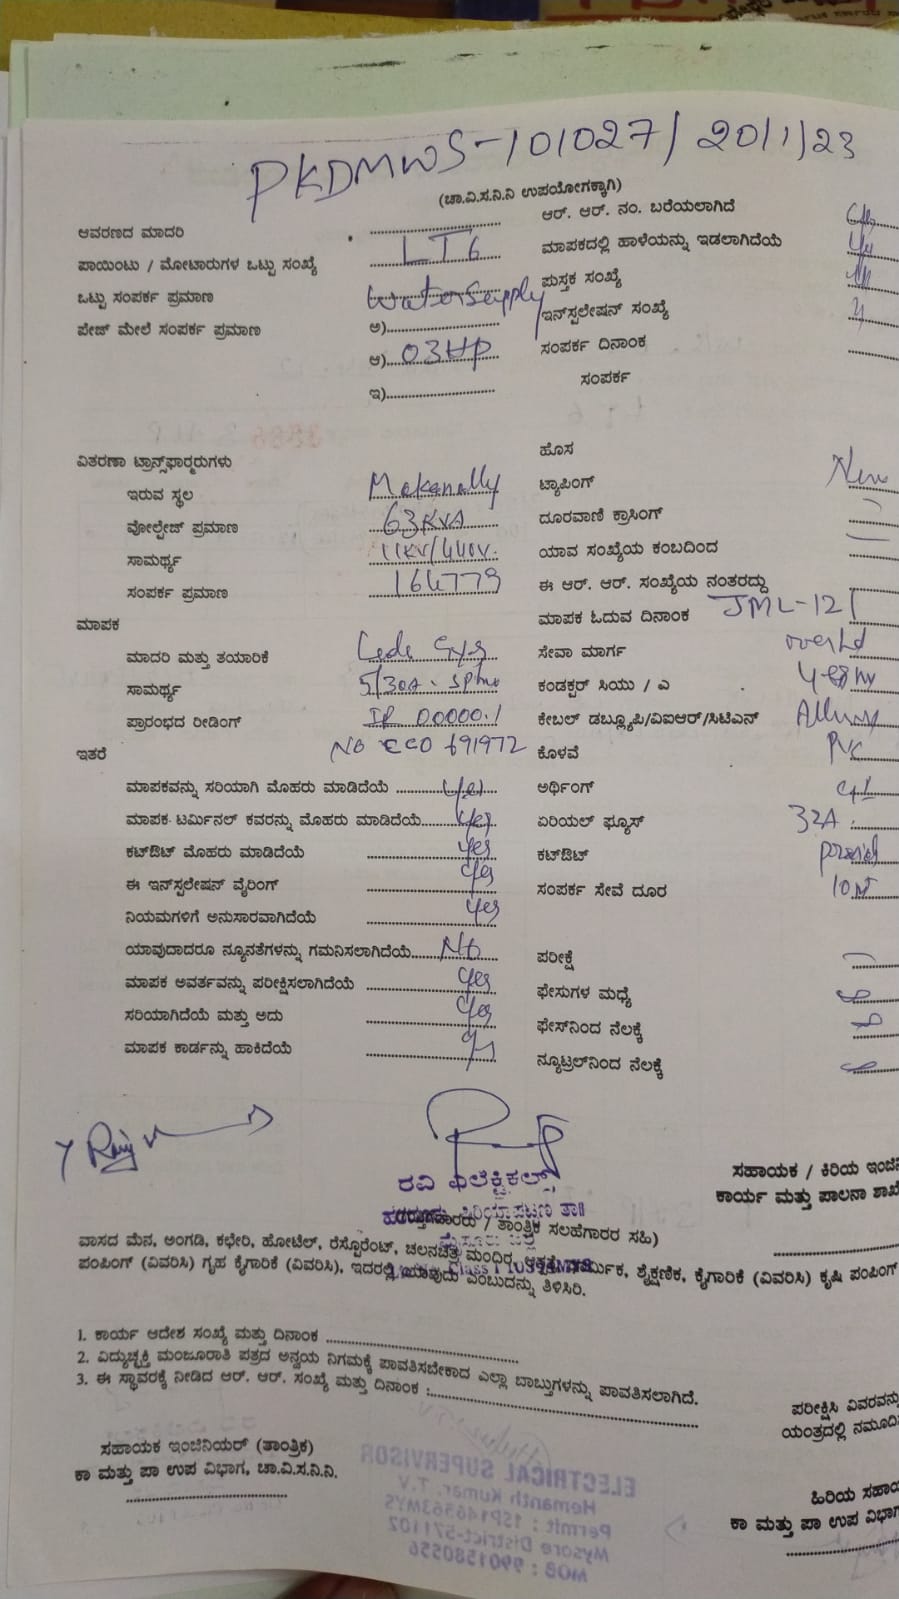 PKDMWS-101027/20/1/23
(ಚಾ.ವಿ.ಸ.ನಿ.ನಿ ಉಪಯೋಗಕ್ಕಾಗಿ)
ಆವರಣದ ಮಾದರಿ
ಪಾಯಿಂಟು / ಮೋಟಾರುಗಳ ಒಟ್ಟು ಸಂಖ್ಯೆ LT6
ಒಟ್ಟು ಸಂಪರ್ಕ ಪ್ರಮಾಣ Water Supply
ಪೇಜ್ ಮೇಲೆ ಸಂಪರ್ಕ ಪ್ರಮಾಣ ಅ)
ಆ) 03HP
ಇ)
ಆರ್. ಆರ್. ನಂ. ಬರೆಯಲಾಗಿದೆ
ಮಾಪಕದಲ್ಲಿ ಹಾಳೆಯನ್ನು ಇಡಲಾಗಿದೆಯೆ
ಪುಸ್ತಕ ಸಂಖ್ಯೆ
ಇನ್‌ಸ್ಟಲೇಷನ್ ಸಂಖ್ಯೆ
ಸಂಪರ್ಕ ದಿನಾಂಕ
ಸಂಪರ್ಕ
ವಿತರಣಾ ಟ್ರಾನ್ಸ್‌ಫಾರ್ಮರುಗಳು
ಇರುವ ಸ್ಥಲ Makanally
ವೋಲ್ಟೇಜ್ ಪ್ರಮಾಣ 63KVA
ಸಾಮರ್ಥ್ಯ 11KV/440V.
ಸಂಪರ್ಕ ಪ್ರಮಾಣ 164779
ಮಾಪಕ
ಮಾದರಿ ಮತ್ತು ತಯಾರಿಕೆ
ಸಾಮರ್ಥ್ಯ 5/30A
ಪ್ರಾರಂಭದ ರೀಡಿಂಗ್ IR 00000.1
ಇತರೆ No ECO 691972
ಹೊಸ
ಟ್ಯಾಪಿಂಗ್ New
ದೂರವಾಣಿ ಕ್ರಾಸಿಂಗ್
ಯಾವ ಸಂಖ್ಯೆಯ ಕಂಬದಿಂದ
ಈ ಆರ್. ಆರ್. ಸಂಖ್ಯೆಯ ನಂತರದ್ದು
ಮಾಪಕ ಓದುವ ದಿನಾಂಕ JML-121
ಸೇವಾ ಮಾರ್ಗ
ಕಂಡಕ್ಟರ್ ಸಿಯು / ಎ
ಕೇಬಲ್ ಡಬ್ಲ್ಯೂಪಿ/ವಿಐಆರ್/ಸಿಟಿಎನ್
ಕೊಳವೆ PVC
ಅರ್ಥಿಂಗ್
ಏರಿಯಲ್ ಫ್ಯೂಸ್ 32A
ಕಟ್‌ಔಟ್
ಸಂಪರ್ಕ ಸೇವೆ ದೂರ
ಮಾಪಕವನ್ನು ಸರಿಯಾಗಿ ಮೊಹರು ಮಾಡಿದೆಯೆ Yes
ಮಾಪಕ ಟರ್ಮಿನಲ್ ಕವರನ್ನು ಮೊಹರು ಮಾಡಿದೆಯೆ Yes
ಕಟ್‌ಔಟ್ ಮೊಹರು ಮಾಡಿದೆಯೆ Yes
ಈ ಇನ್‌ಸ್ಟಲೇಷನ್ ವೈರಿಂಗ್ Yes
ನಿಯಮಗಳಿಗೆ ಅನುಸಾರವಾಗಿದೆಯೆ Yes
ಯಾವುದಾದರೂ ನ್ಯೂನತೆಗಳನ್ನು ಗಮನಿಸಲಾಗಿದೆಯೆ No
ಮಾಪಕ ಅವರ್ತವನ್ನು ಪರೀಕ್ಷಿಸಲಾಗಿದೆಯೆ Yes
ಸರಿಯಾಗಿದೆಯೆ ಮತ್ತು ಅದು Yes
ಮಾಪಕ ಕಾರ್ಡನ್ನು ಹಾಕಿದೆಯೆ
ಪರೀಕ್ಷೆ
ಫೇಸುಗಳ ಮಧ್ಯೆ
ಫೇಸ್‌ನಿಂದ ನೆಲಕ್ಕೆ
ನ್ಯೂಟ್ರಲ್‌ನಿಂದ ನೆಲಕ್ಕೆ
ರವಿ ಎಲೆಕ್ಟ್ರಿಕಲ್ಸ್
ಸಹಾಯಕ / ಕಿರಿಯ ಇಂಜಿನಿ
ಕಾರ್ಯ ಮತ್ತು ಪಾಲನಾ ಶಾಖೆ
/ ತಾಂತ್ರಿಕ ಸಲಹೆಗಾರರ ಸಹಿ)
ವಾಸದ ಮೆನ, ಅಂಗಡಿ, ಕಛೇರಿ, ಹೋಟೆಲ್, ರೆಸ್ಟೋರೆಂಟ್, ಚಲನಚಿತ್ರ ಮಂಧಿರ, ಶೈಕ್ಷಣಿಕ, ಕೈಗಾರಿಕೆ (ವಿವರಿಸಿ) ಕೃಷಿ ಪಂಪಿಂಗ್
ಪಂಪಿಂಗ್ (ವಿವರಿಸಿ) ಗೃಹ ಕೈಗಾರಿಕೆ (ವಿವರಿಸಿ), ಇದರಲ್ಲಿ ಯಾವುದು ಎಂಬುದನ್ನು ತಿಳಿಸಿರಿ.
1. ಕಾರ್ಯ ಆದೇಶ ಸಂಖ್ಯೆ ಮತ್ತು ದಿನಾಂಕ
2. ವಿದ್ಯುಚ್ಛಕ್ತಿ ಮಂಜೂರಾತಿ ಪತ್ರದ ಅನ್ವಯ ನಿಗಮಕ್ಕೆ ಪಾವತಿಸಬೇಕಾದ ಎಲ್ಲಾ ಬಾಬ್ತುಗಳನ್ನು ಪಾವತಿಸಲಾಗಿದೆ.
3. ಈ ಸ್ಥಾವರಕ್ಕೆ ನೀಡಿದ ಆರ್. ಆರ್. ಸಂಖ್ಯೆ ಮತ್ತು ದಿನಾಂಕ :
ಪರೀಕ್ಷಿಸಿ ವಿವರವನ್ನು
ಯಂತ್ರದಲ್ಲಿ ನಮೂದಿ
ಸಹಾಯಕ ಇಂಜಿನಿಯರ್ (ತಾಂತ್ರಿಕ)
ಕಾ ಮತ್ತು ಪಾ ಉಪ ವಿಭಾಗ, ಚಾ.ವಿ.ಸ.ನಿ.ನಿ.
ಹಿರಿಯ ಸಹಾ
ಕಾ ಮತ್ತು ಪಾ ಉಪ ವಿಭಾಗ
ELECTRICAL SUPERVISOR
Hemanth Kumar. T.V
Permit : 1SP146563MYS
Mysore District-571107
MOB : 9901580556